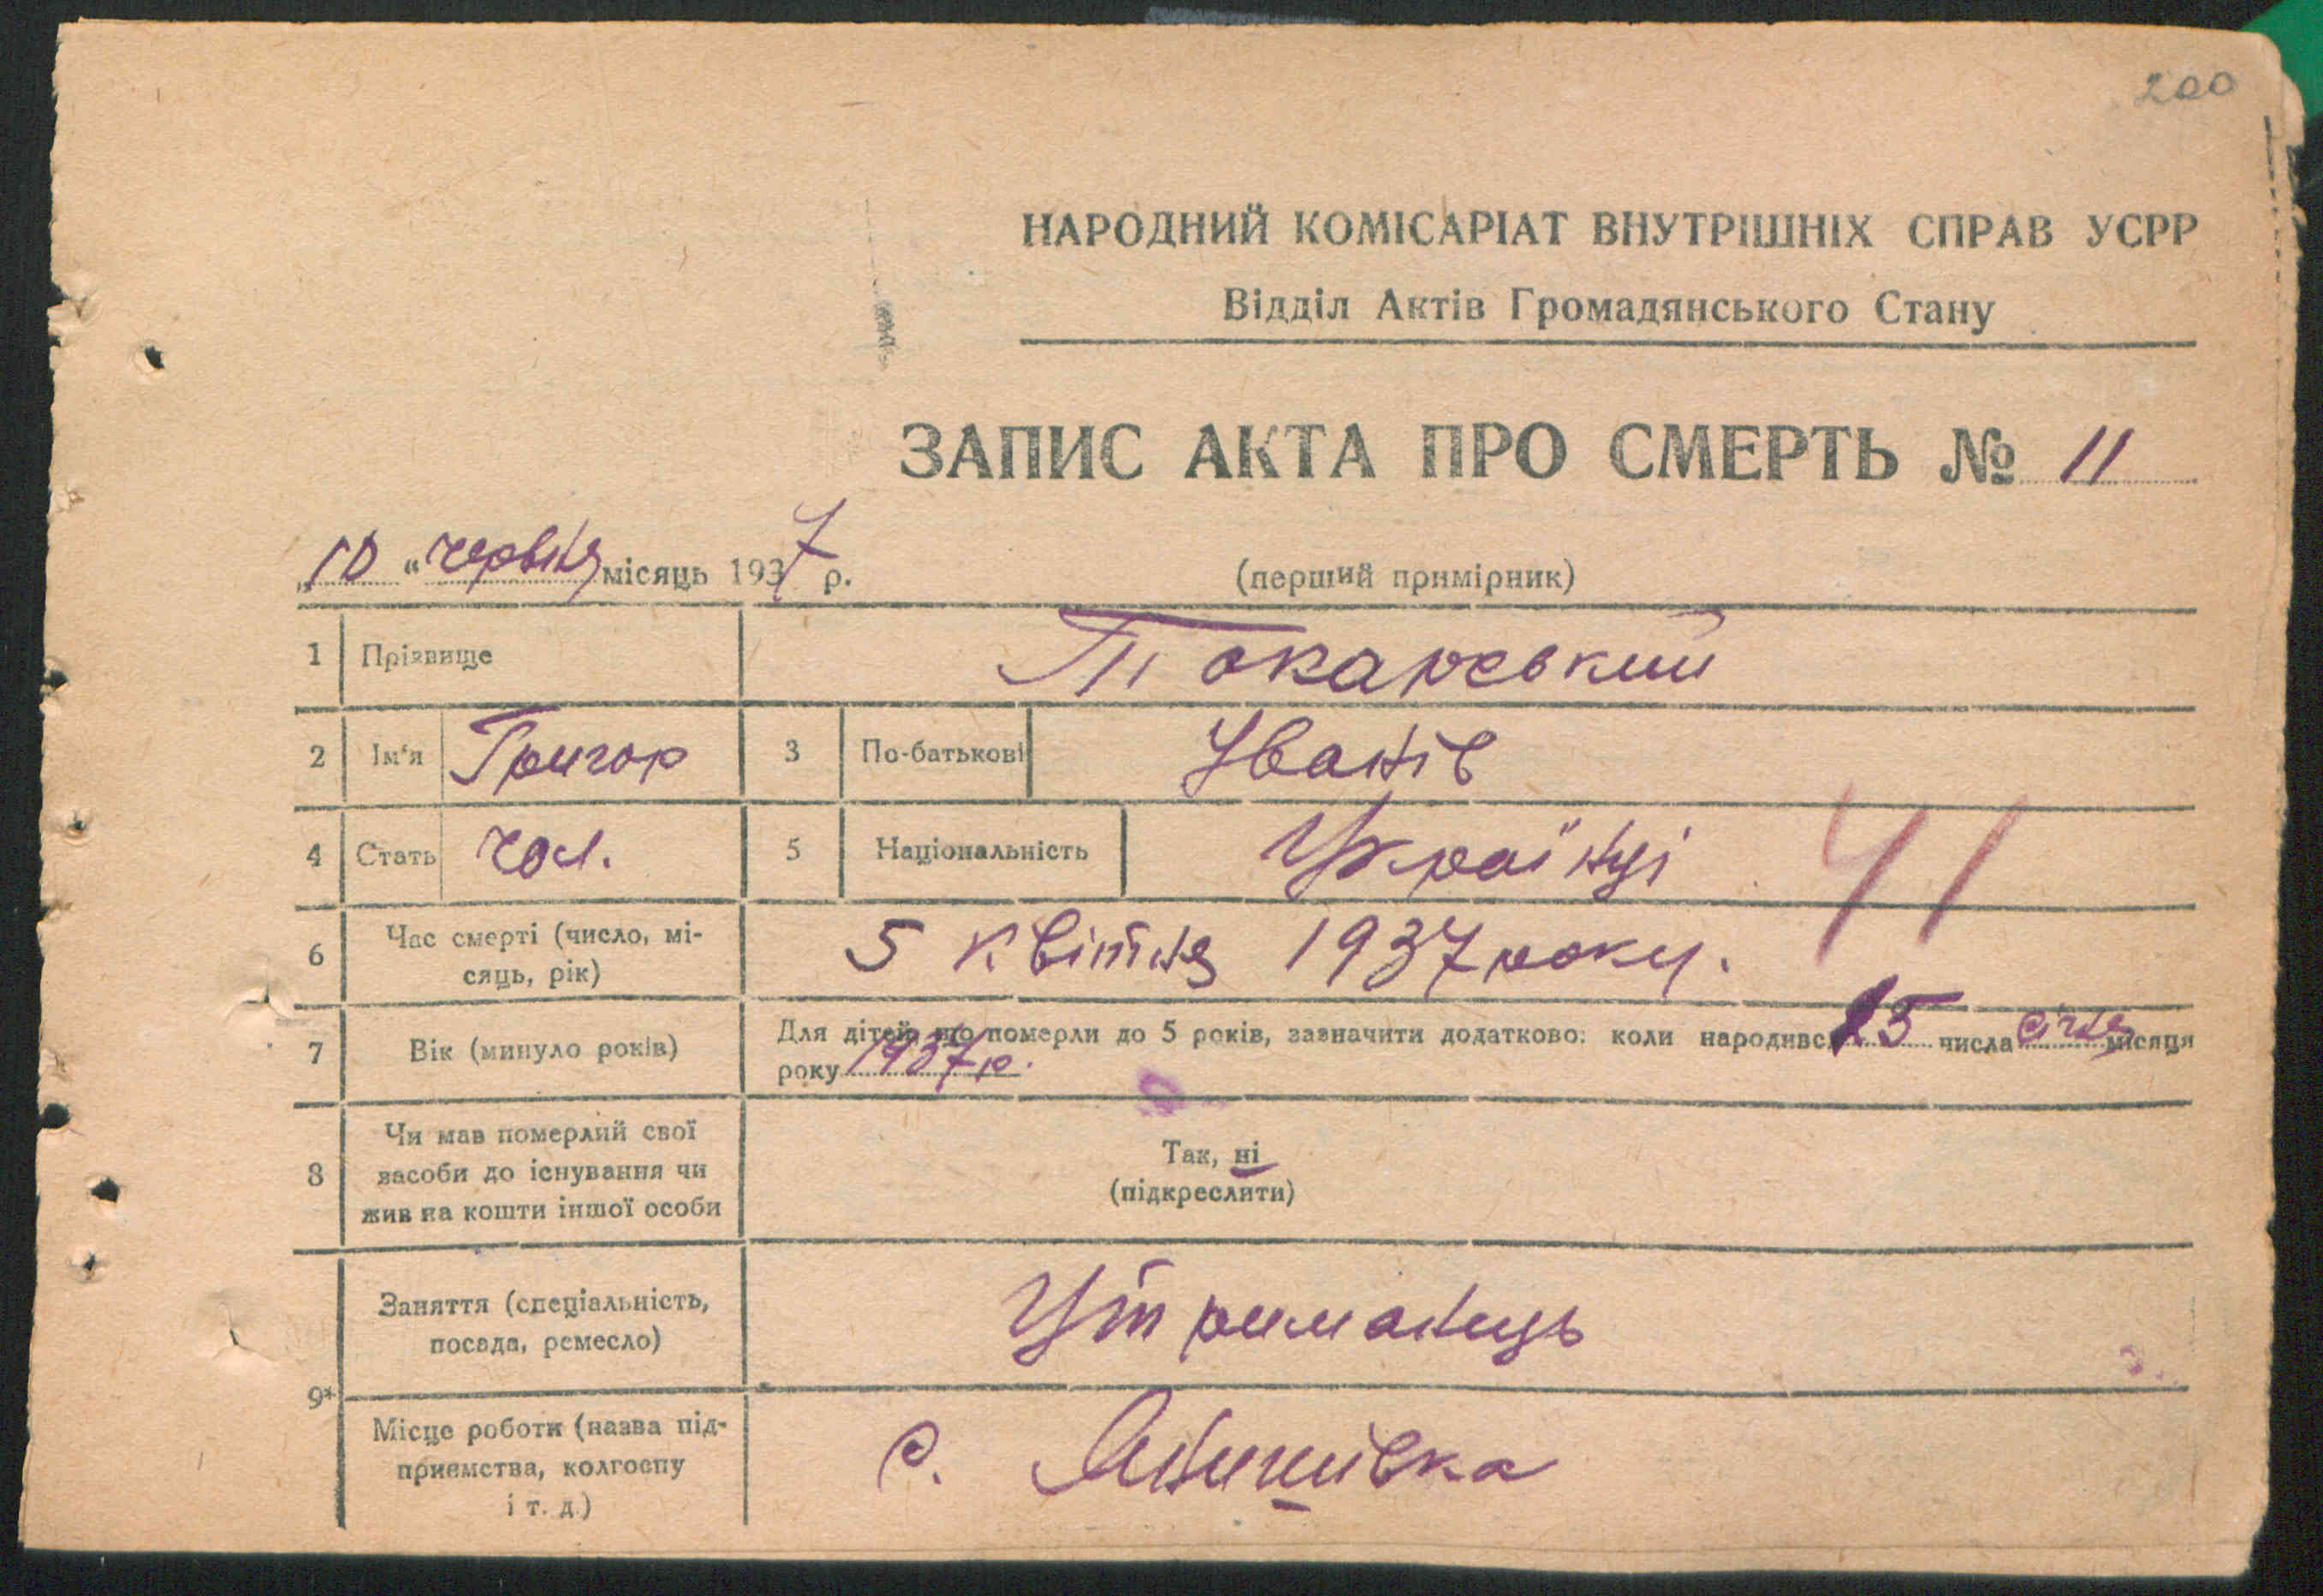 200
НАРОДНИЙ КОМІСАРІАТ ВНУТРІШНІХ СПРАВ УСРР
Відділ Актів Громадянського Стану
ЗАПИС АКТА ПРО СМЕРТЬ № 11
„10“ червня місяць 1937 р.
(перший примірник)
1 Прізвище Токарський
2 Ім'я Григор 3 По-батькові Іванів
4 Стать чол. 5 Національність Українці
41
6 Час смерті (число, мі-
сяць, рік) 5 квітня 1937 року.
7 Вік (минуло років) Для дітей, що померли до 5 років, зазначити додатково: коли народивс. 25 числа січня місяця
року 1937 р.
8 Чи мав померлий свої
засоби до існування чи
жив на кошти іншої особи
Так, ні
(підкреслити)
9* Заняття (спеціальність,
посада, ремесло) Утриманець
Місце роботи (назва під-
приємства, колгоспу
і т. д.) с. Янишівка